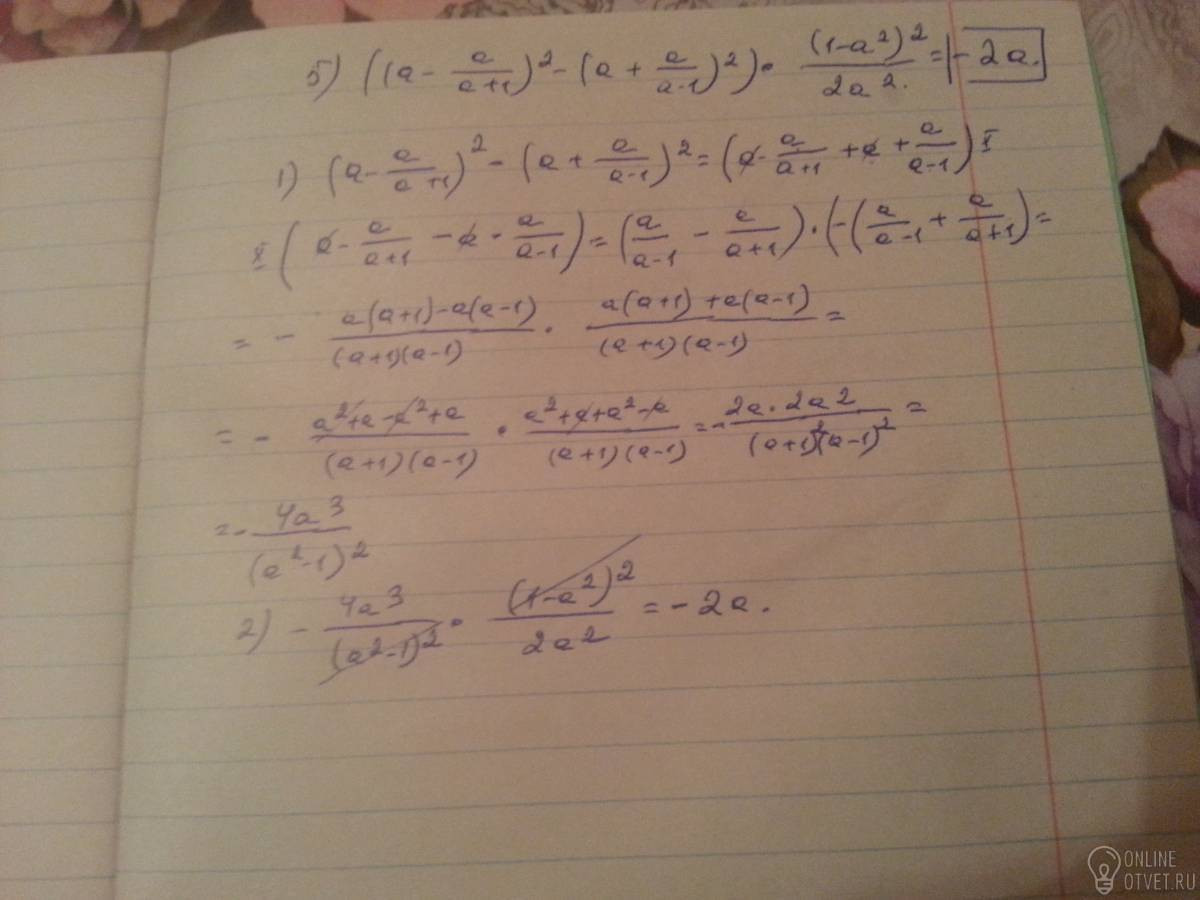 5) ((a - a/(a+1))^2 - (a + a/(a-1))^2) · (1-a^2)^2/(2a^2.) = -2a.
1) (a - a/(a+1))^2 - (a + a/(a-1))^2 = (a - a/(a+1) + a + a/(a-1)) x
x (a - a/(a+1) - a - a/(a-1)) = (a/(a-1) - a/(a+1)) · (-(a/(a-1) + a/(a+1)) =
= - (a(a+1)-a(a-1))/((a+1)(a-1)) · (a(a+1)+a(a-1))/((a+1)(a-1)) =
= - (a^2+a-a^2+a)/((a+1)(a-1)) · (a^2+a+a^2-a)/((a+1)(a-1)) = - (2a·2a^2)/((a+1)^2(a-1)^2) =
= - 4a^3/(a^2-1)^2
2) - 4a^3/(a^2-1)^2 · (1-a^2)^2/(2a^2) = -2a.
ONLINE
OTVET.RU